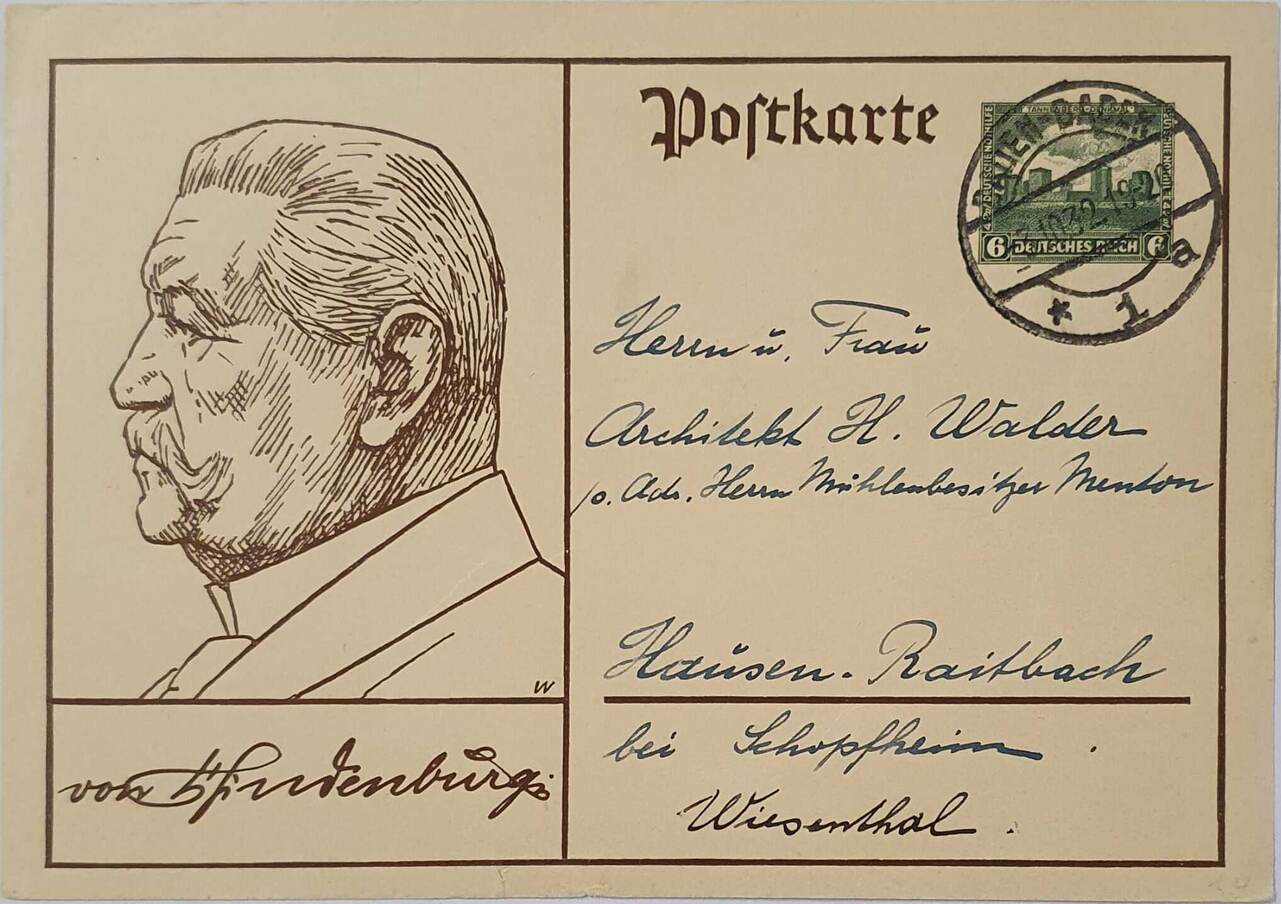 Postkarte
TANNENBERG-DENKMAL
DEUTSCHE NOTHILFE
6 DEUTSCHES REICH 6
BADEN-BADEN
10.32.18-20
* 1 a
Herrn u. Frau
Architekt H. Walder
p. Adr. Herrn Mühlenbesitzer Menton
Hausen-Raitbach
bei Schopfheim.
Wiesenthal.
W
von Hindenburg